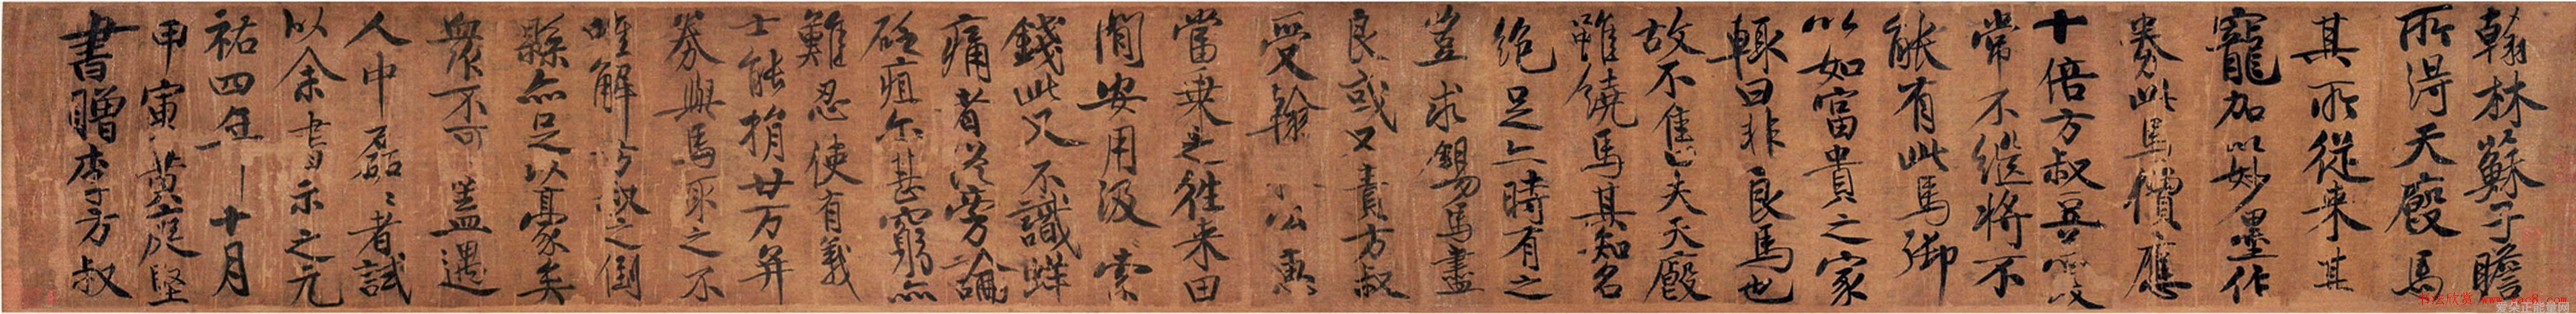 翰林蘇子瞻
所得天廄馬
其所從來甚
寵加以妙墨作
券此馬價應
十倍方叔豆羹
常不繼將不
能有此馬御
以如富貴之家
輒曰非良馬也
故不售夫天廄
雖饒馬其知名
絕足亦時有之
豈求錫馬盡
良或又責方叔
受翰 公惠
當乘之往來田
間安用汲索
錢此又不識蚌
痛者從旁論
砭疽尔甚窮亦
難忍使有義
士能捐廿万并
券與馬取之不
唯解方叔之倒
縣亦足以豪矣
眾不可盍遇
人中磊〻者試
以余書示之元
祐四年十月
甲寅黃庭堅
書贈李方叔
书法欣赏 www.yac8.com
爱朵正能量网